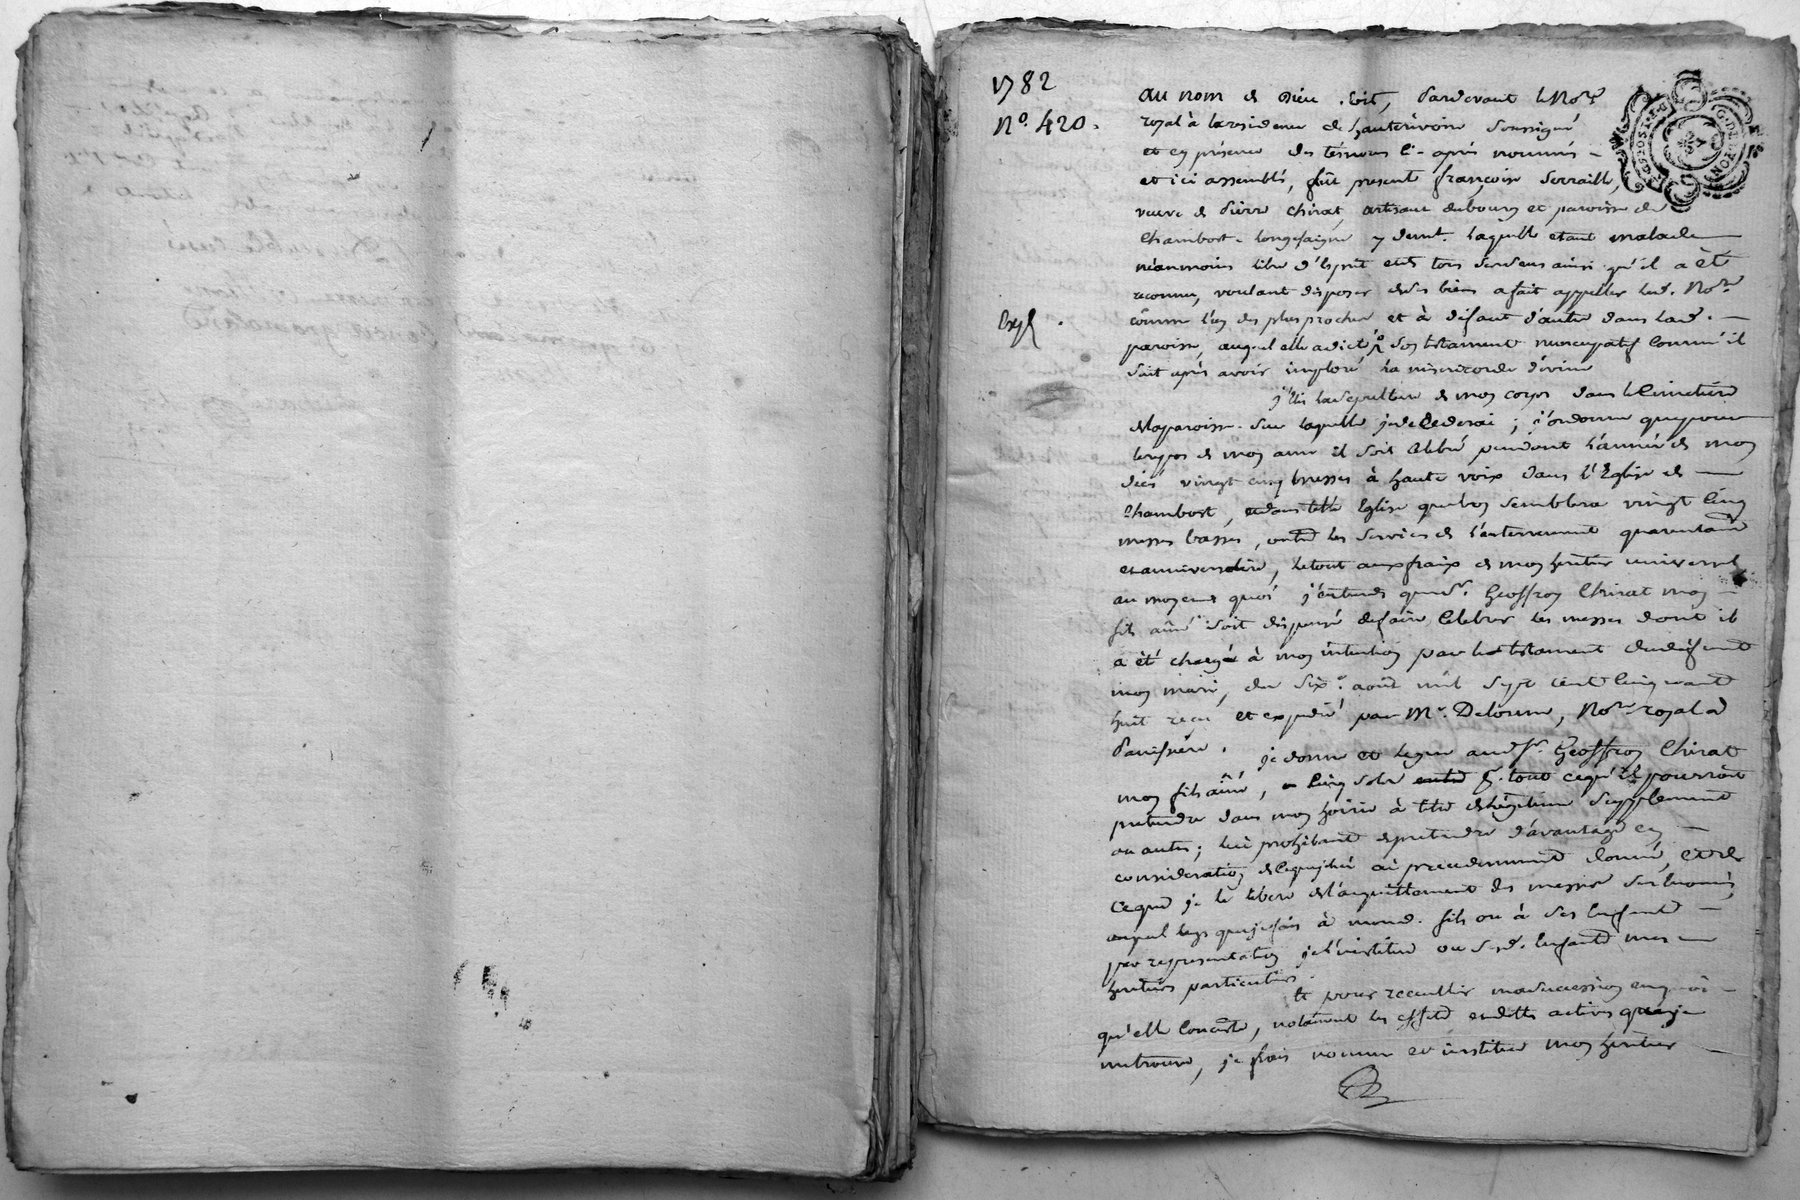 1782
N.º 420.
Exp.é
G.D. DE LYON
au nom de Dieu soit, Pardevant le No.re
royal à la residence de hauterivoire soussigné
et en présence des témoins ci-après nommés
et ici assemblés, fût presente françoise Serraille,
veuve de Pierre Chirat, artisane du bourg et paroisse de
Chambost-longessaigne y demt. laquelle etant malade
néanmoins libre d'Esprit et de tous ses sens ainsi qu'il a êté
reconnu, voulant disposer de ses biens a fait appeller led. No.re
comme l'un des plus proches et à défaut d'autre dans lad.
paroisse, auquel elle a dicté son testament nuncupatif comm'il
suit après avoir imploré la misericorde divine
j'Elis la sepulture de mon corps dans le Cimetiere
de la paroisse sur laquelle je decederai ; j'ordonne que pour
le repos de mon ame il soit célébré pendant l'année de mon
décés vingt cinq messes à haute voix dans l'Eglise de
Chambost, et dans telle Eglise que bon semblera vingt cinq
messes basses, outre les services de l'enterrement quarantaine
et anniversaire, le tout aux fraix de mon heritier universel
au moyend quoi j'entends que s.r Geoffroy Chirat mon
fils aîné soit dispensé de faire célébrer les messes dont il
a êté chargé à mon intention par le testament dudéfunt
mon mari, du six.e août mil sept cent cinquante
huit reçu et expedié par M.e Delorme, No.re royal à
Panissière. je donne et legue aud. s.r Geoffroy Chirat
mon fils aîné, cinq sols p.r tout ce qu'il pourroit
pretendre dans mon hoirie à titre de légitime supplement
ou autre ; lui prohibant de pretendre d'avantage en
consideration de ce que je lui ai precedemment donné, et de
ce que je le libere de l'acquittement des messes susénoncés
auquel legs que je fais à mond. fils ou à ses Enfants
par representation je l'institue ou sesd. Enfants mes
heritiers particuliers.
Et pour recueillir ma succession en quoi
qu'elle consiste, notament les effets et dettes actives que je
me trouve, je fais nomme et institue mon heritier